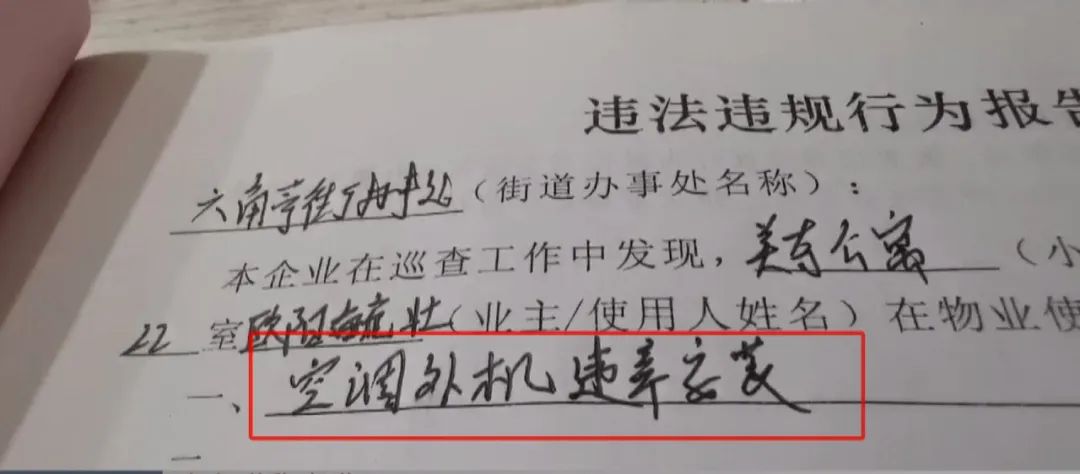 违法违规行为报告
六角亭街办事处(街道办事处名称):
本企业在巡查工作中发现,关东公寓(小
22室欧阳(业主/使用人姓名)在物业使
一、空调外机违章安装